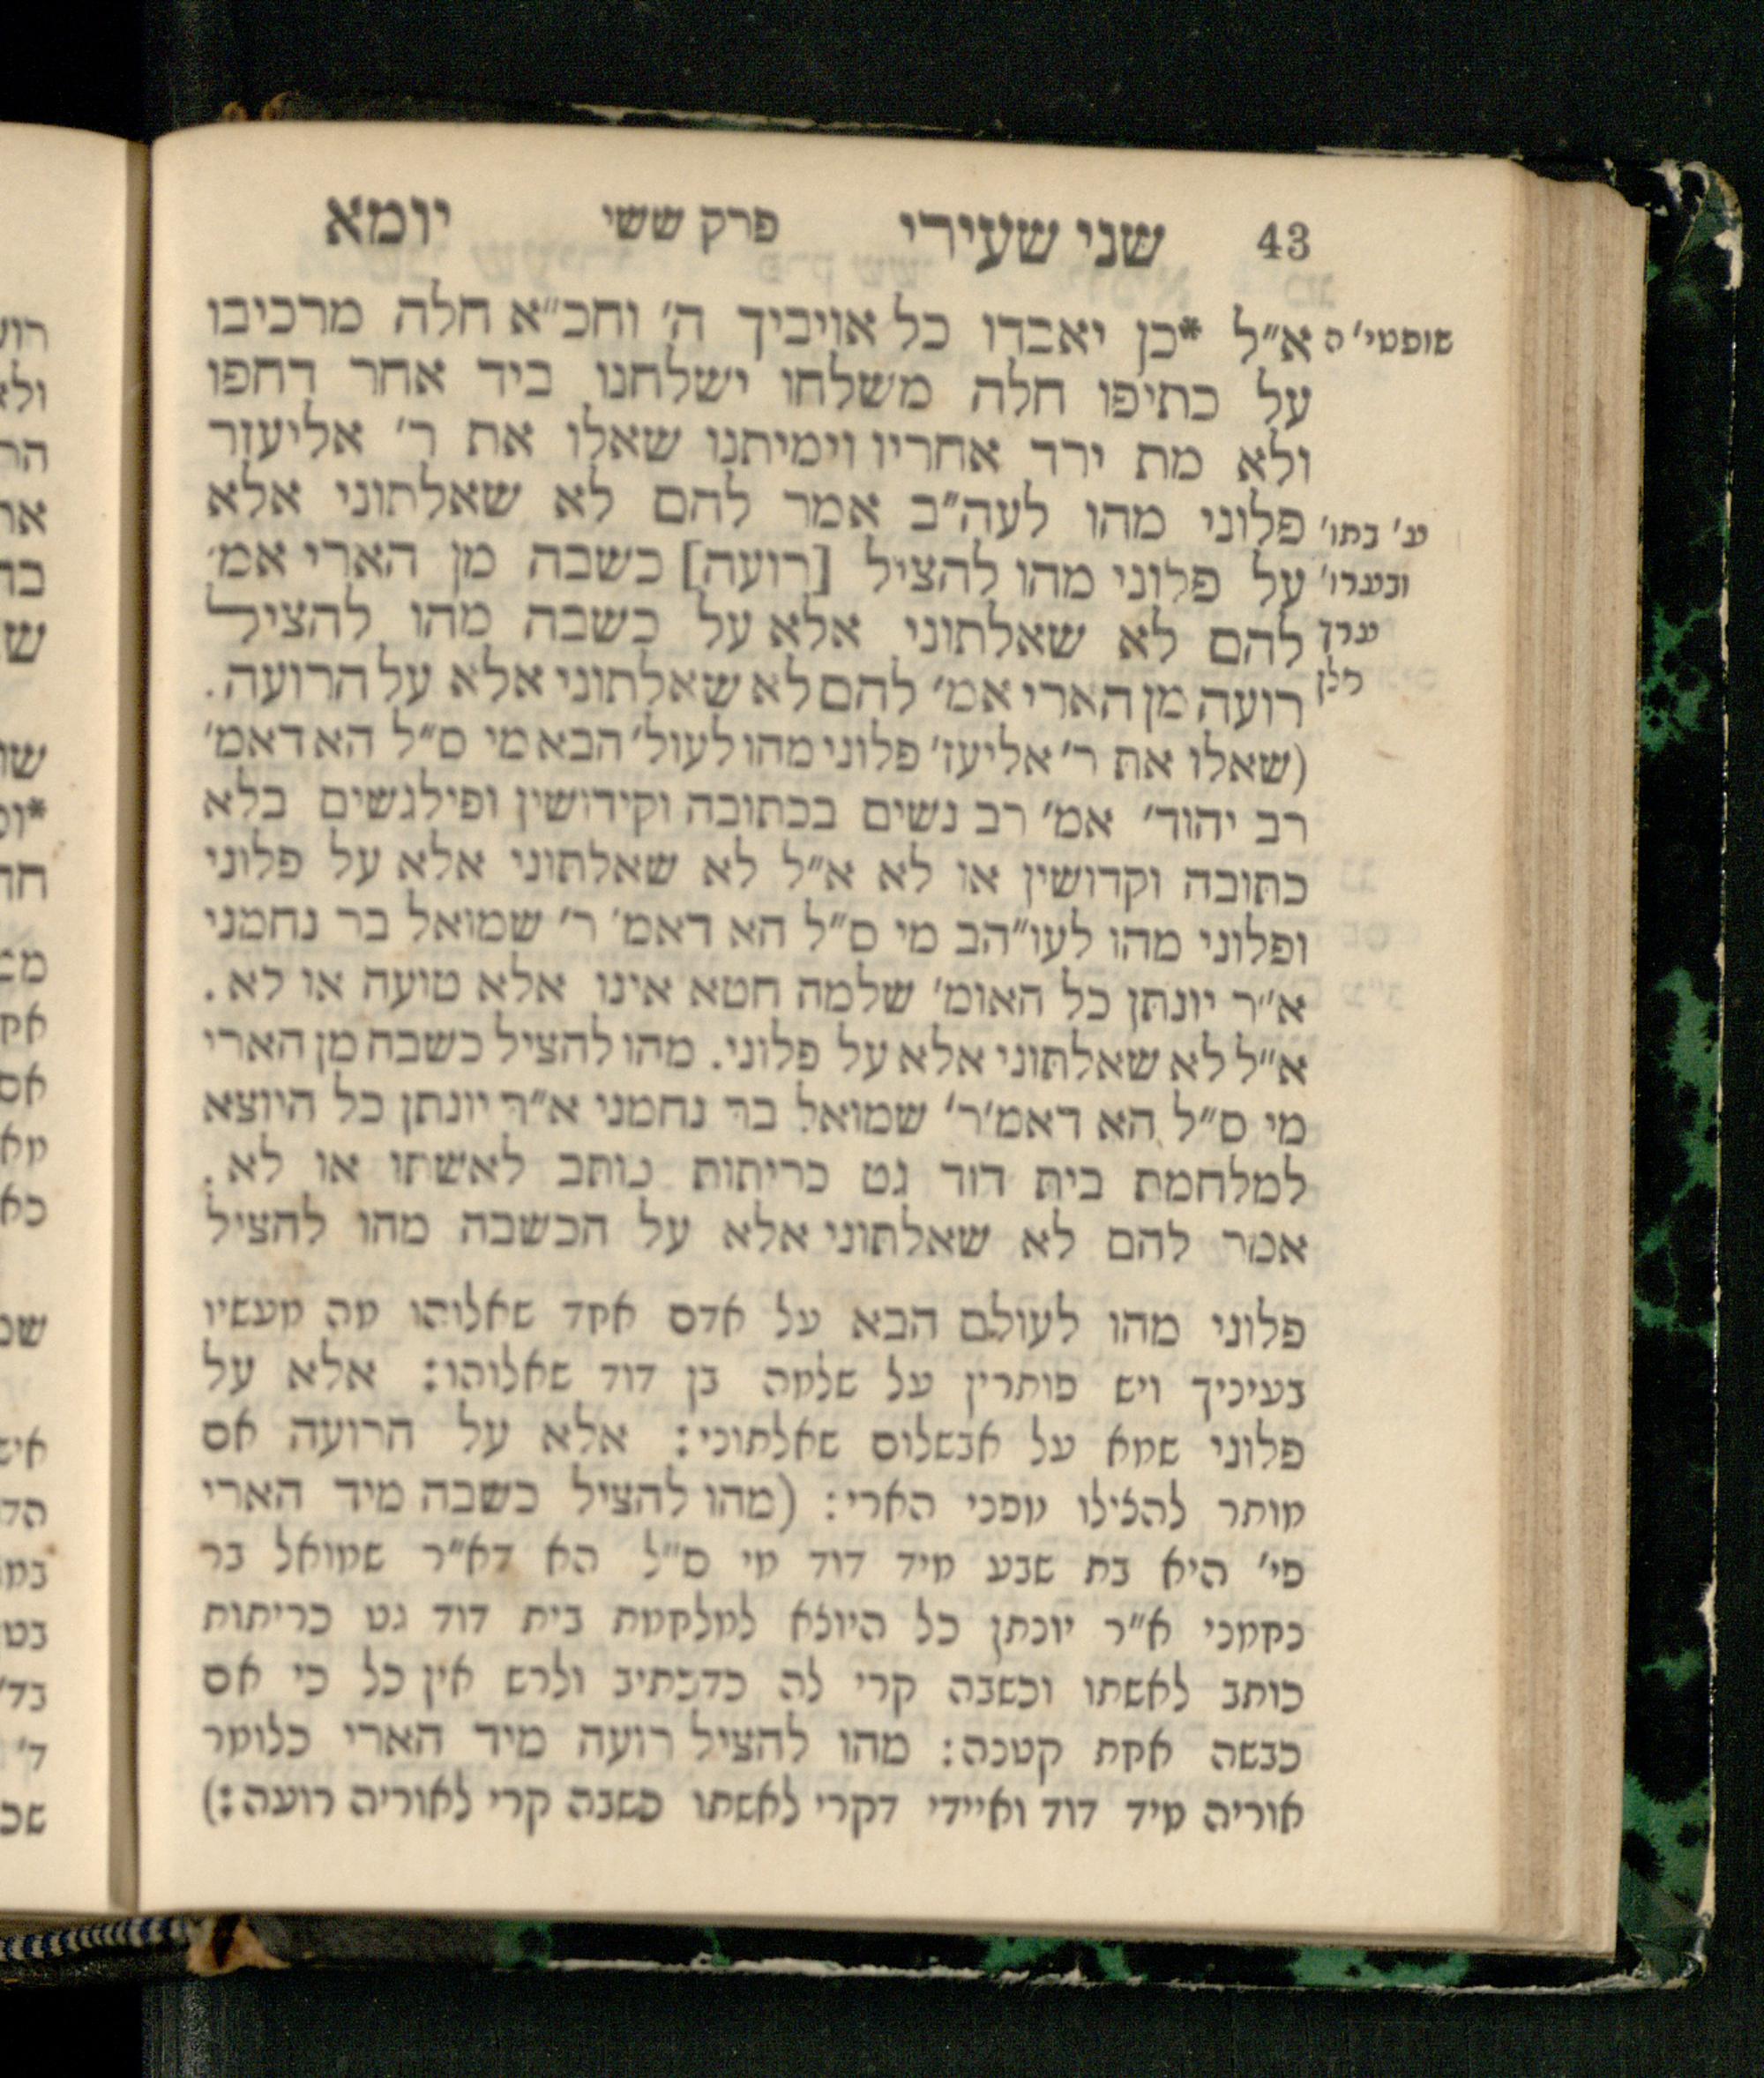 43 שני שעירי פרק ששי יומא
שופטי' ה
א״ל *כן יאבדו כל אויביך ה' וחכ״א חלה מרכיבו
על כתיפו חלה משלחו ישלחנו ביד אחר דחפו
ולא מת ירד אחריו וימיתנו שאלו את ר' אליעזר
ע' בתו'
פלוני מהו לעה״ב אמר להם לא שאלתוני אלא
ובערו'
על פלוני מהו להציל [רועה] כשבה מן הארי אמ'
ערן
להם לא שאלתוני אלא על כשבה מהו להציל
רועה מן הארי אמ' להם לא שאלתוני אלא על הרועה.
(שאלו את ר' אליעז' פלוני מהו לעול' הבא מי ס״ל הא דאמ'
רב יהוד' אמ' רב נשים בכתובה וקידושין ופילגשים בלא
כתובה וקדושין או לא א״ל לא שאלתוני אלא על פלוני
ופלוני מהו לעו״הב מי ס״ל הא דאמ' ר' שמואל בר נחמני
א״ר יונתן כל האומ' שלמה חטא אינו אלא טועה או לא.
א״ל לא שאלתוני אלא על פלוני. מהו להציל כשבח מן הארי
מי ס״ל הא דאמ'ר' שמואל בר נחמני א״ר יונתן כל היוצא
למלחמת בית דוד גט כריתות כותב לאשתו או לא.
אמר להם לא שאלתוני אלא על הכשבה מהו להציל
פלוני מהו לעולם הבא על אדם אחד שאלוהו מה מעשיו
בעיניך ויש פותרין על שלמה בן דוד שאלוהו: אלא על
פלוני שמא על אבשלום שאלתוני: אלא על הרועה אם
מותר להצילו מפני הארי: (מהו להציל כשבה מיד הארי
פי' היא בת שבע מיד דוד מי ס״ל הא דא״ר שמואל בר
נחמני א״ר יונתן כל היוצא למלחמת בית דוד גט כריתות
כותב לאשתו וכשבה קרי לה כדכתיב ולרש אין כל כי אם
כבשה אחת קטנה: מהו להציל רועה מיד הארי כלומר
אוריה מיד דוד ואיידי דקרי לאשתו כשבה קרי לאוריה רועה:)